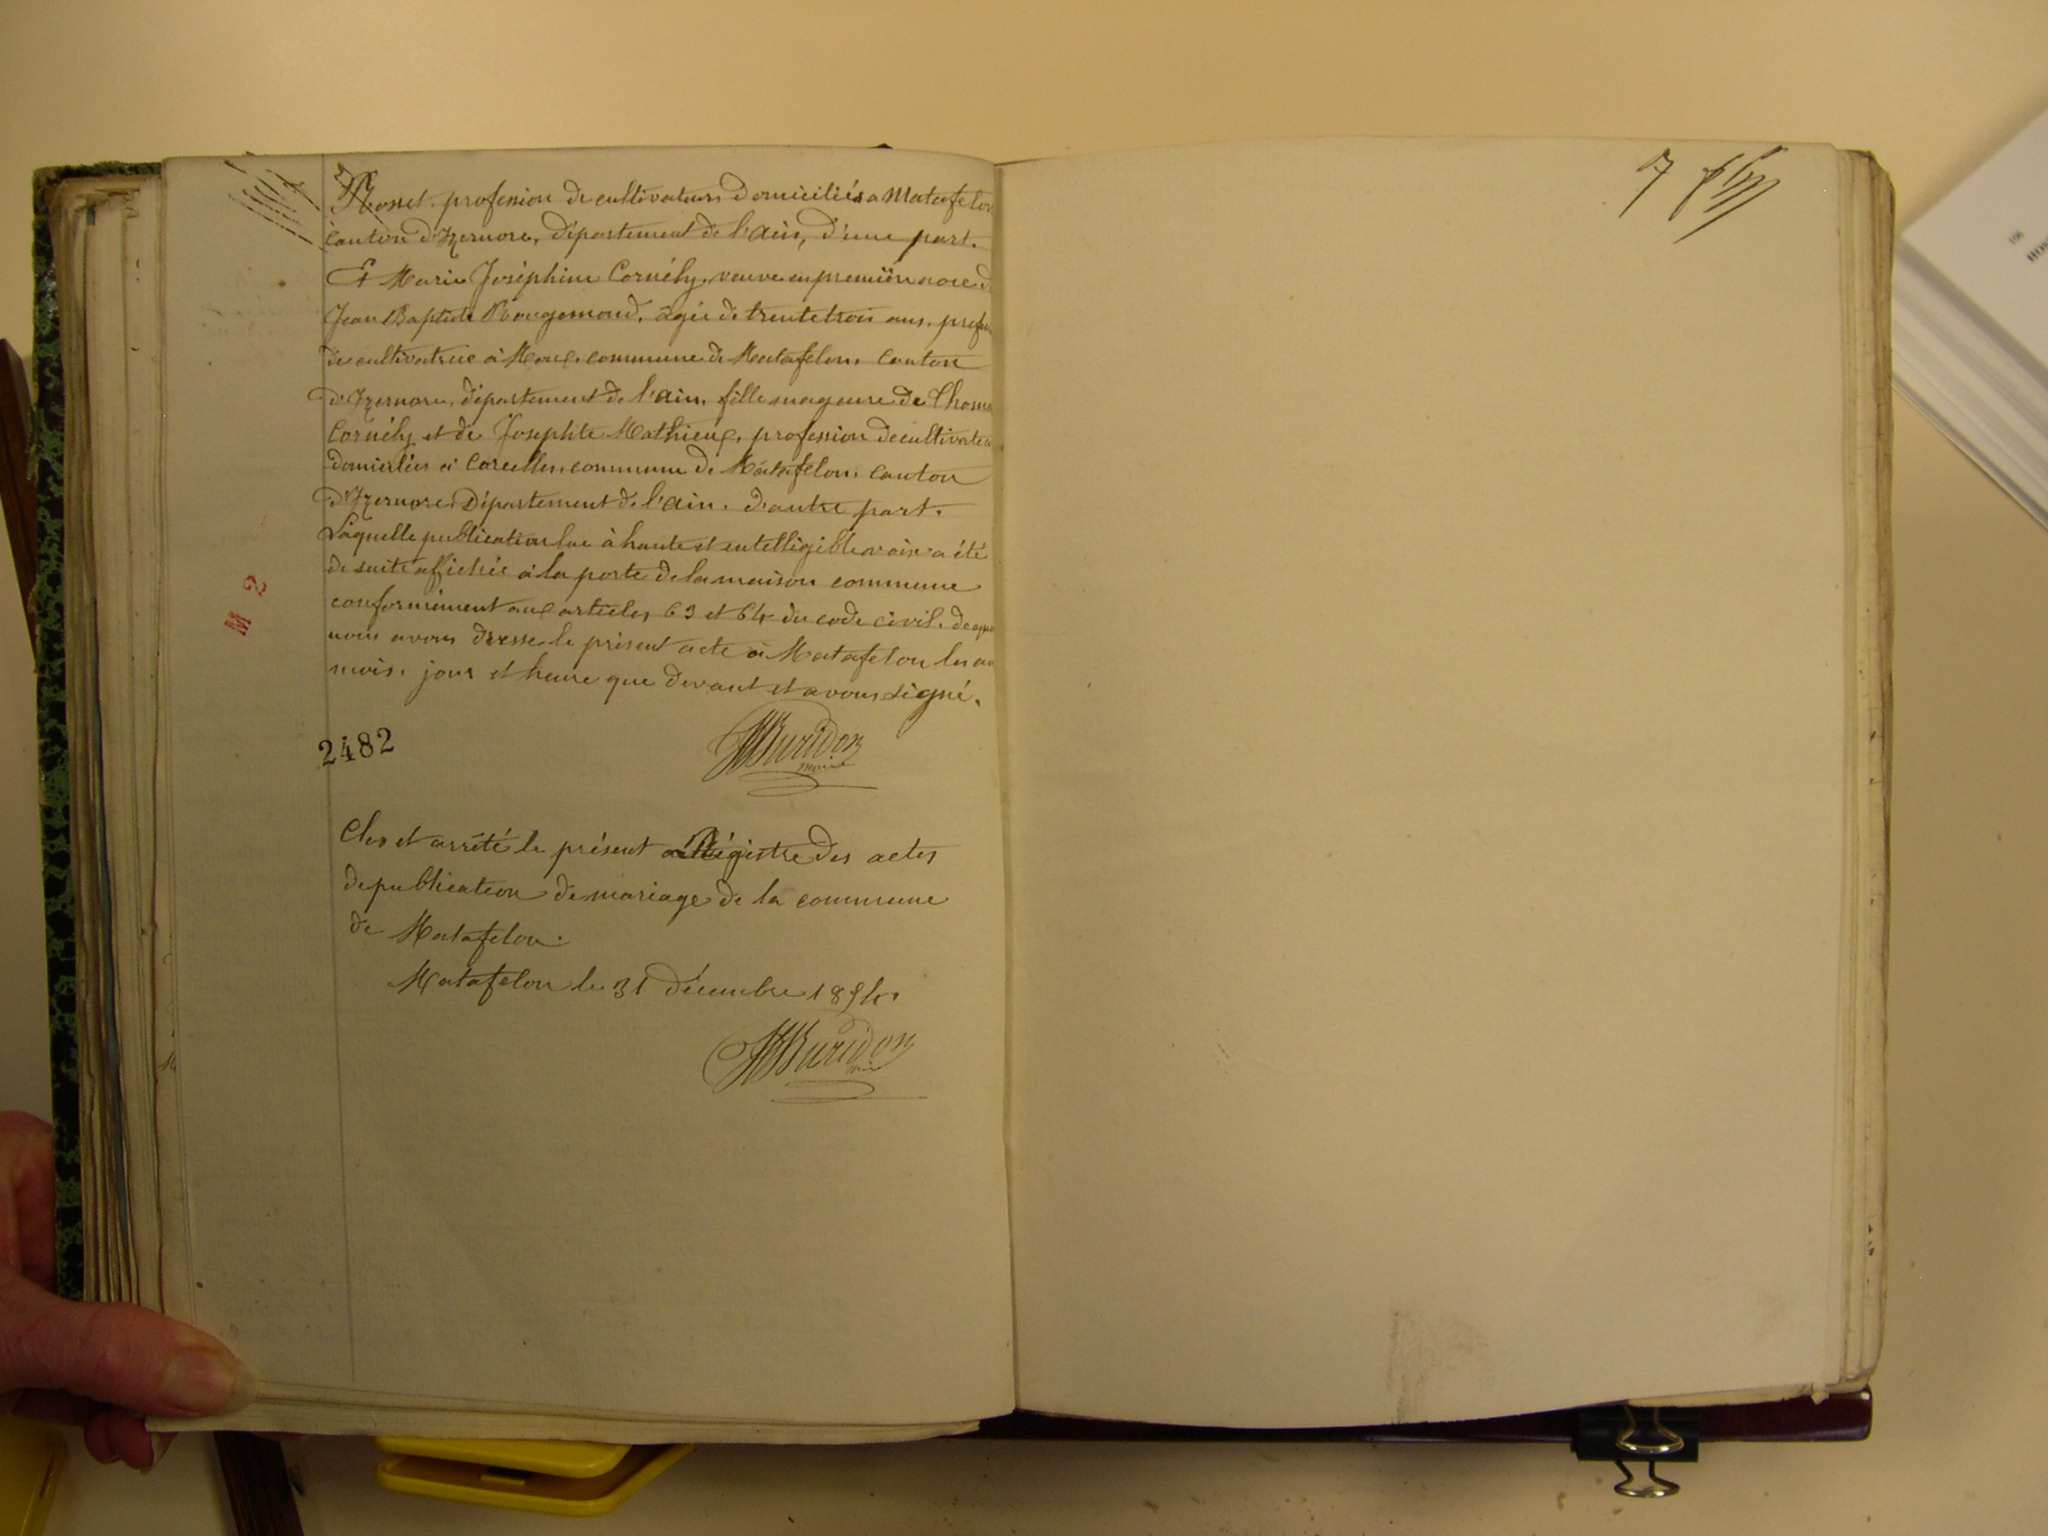 Rosset. profession de cultivateurs domiciliés a Matafelon
canton d'Izernore, département de l'ain, d'une part.
Et Marie Joséphine Cornély, veuve en première noce d
Jean Baptiste Rougemond, agée de trente trois ans, profes
de cultivatrice à commune de Matafelon, canton
d'Izernore, département de l'ain, fille mageure de Thoma
Cornély et de Josephte Mathieux, profession de cultivate
domiciliés à Corcelles, commune de Matafelon, canton
d'Izernore, Département de l'ain, d'autre part.
Laquelle publication lue à haute et intelligible voix a été
de suite affichée à la porte de la maison commune
conformément aux articles 63 et 64 du code civil. de quo
nous avons dresse le présent acte à Matafelon les an
mois, jour et heure que devant et avons signé.
Buridon
maire
2482
M 2
Clos et arrêté le présent Régistre des actes
de publication de mariage de la commune
de Matafelon.
Matafelon le 31 décembre 1854.
Buridon
7